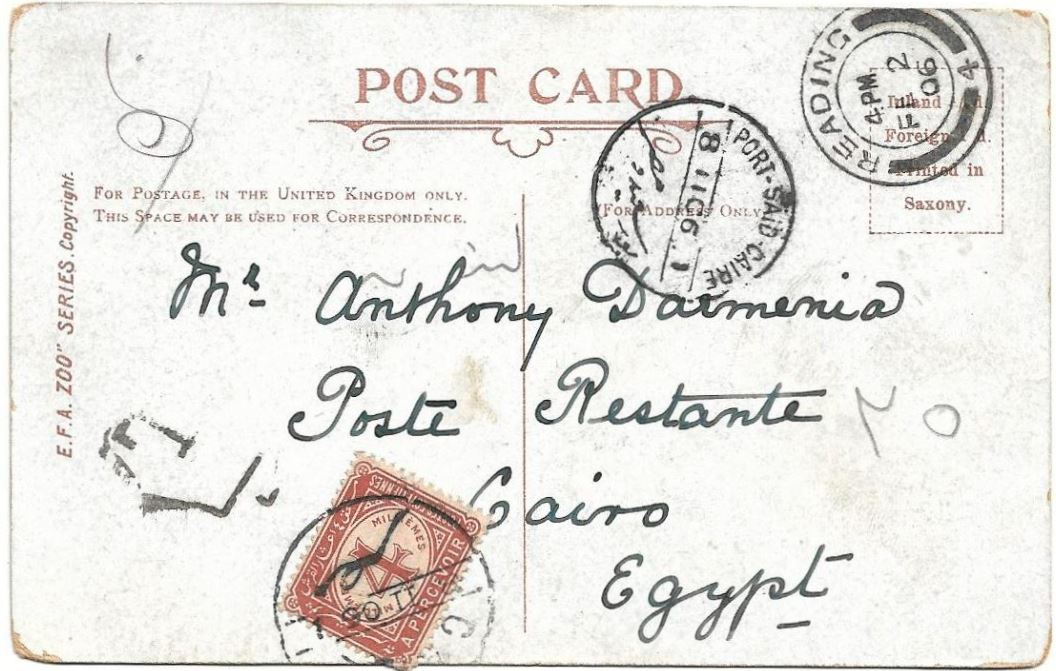 POST CARD.
READING
4.PM
FE 2
06
4
Inland and
Foreign.
Printed in
Saxony.
PORT-SAID-CAIRE
8 II 06.
FOR POSTAGE, IN THE UNITED KINGDOM ONLY.
THIS SPACE MAY BE USED FOR CORRESPONDENCE.
(FOR ADDRESS ONLY)
E.F.A. "ZOO" SERIES. Copyright.
Mr Anthony Darmenia
Poste Restante
Cairo
Egypt
T
MILLIEMES
4
A PERCEVOIR